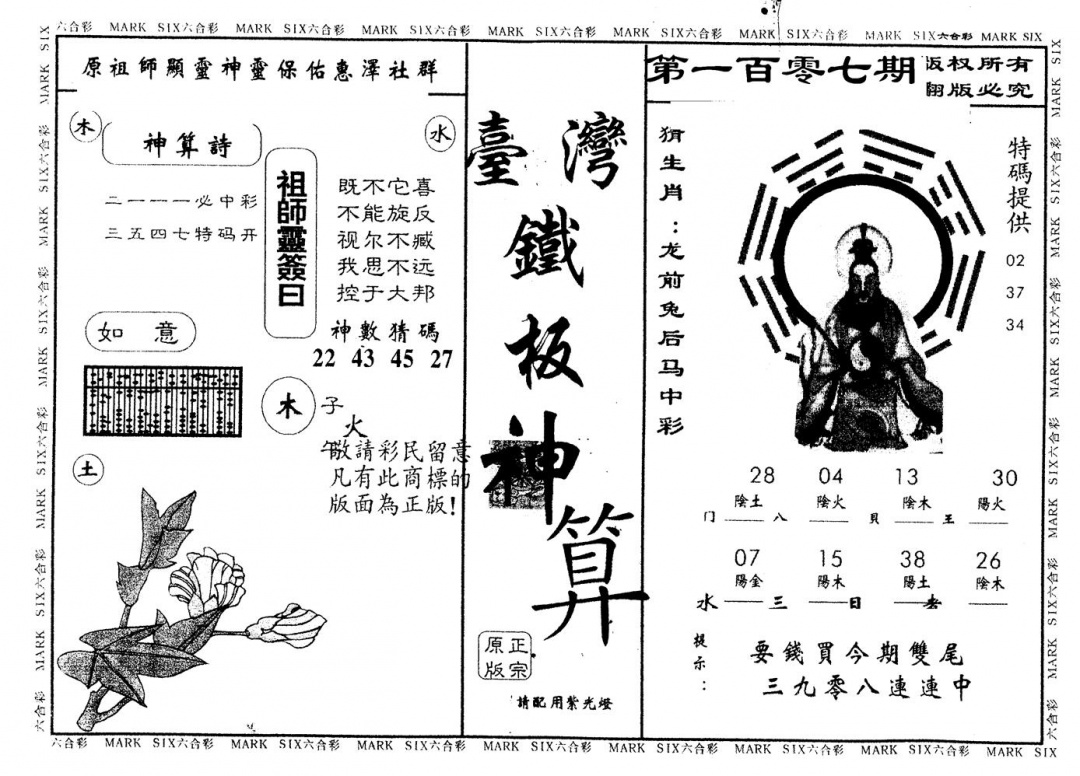 六合彩 MARK SIX六合彩 MARK SIX六合彩 MARK SIX六合彩 MARK SIX六合彩 MARK SIX六合彩 MARK SIX六合彩 MARK SIX六合彩 MARK SIX
原祖師顯靈神靈保佑惠澤社群
木
神算詩
水
二一一一必中彩
三五四七特码开
祖師靈簽曰
既不它喜
不能旋反
视尔不臧
我思不远
控于大邦
神數猜碼
22 43 45 27
如 意
木
子
火
午
敬請彩民留意
凡有此商標的
版面為正版!
土
臺灣
鐵
板
神
算
正宗
原版
請配用紫光燈
第一百零七期
版权所有
翻版必究
猜生肖:龙前兔后马中彩
特碼提供
02
37
34
28 04 13 30
陰土 陰火 陰木 陽火
门 八 貝 王
07 15 38 26
陽金 陽木 陽土 陰木
水 三 日 老
提示:
要錢買今期雙尾
三九零八連連中
六合彩 MARK SIX六合彩 MARK SIX六合彩 MARK SIX六合彩 MARK SIX六合彩 MARK SIX六合彩 MARK SIX六合彩 MARK SIX六合彩 MARK SIX